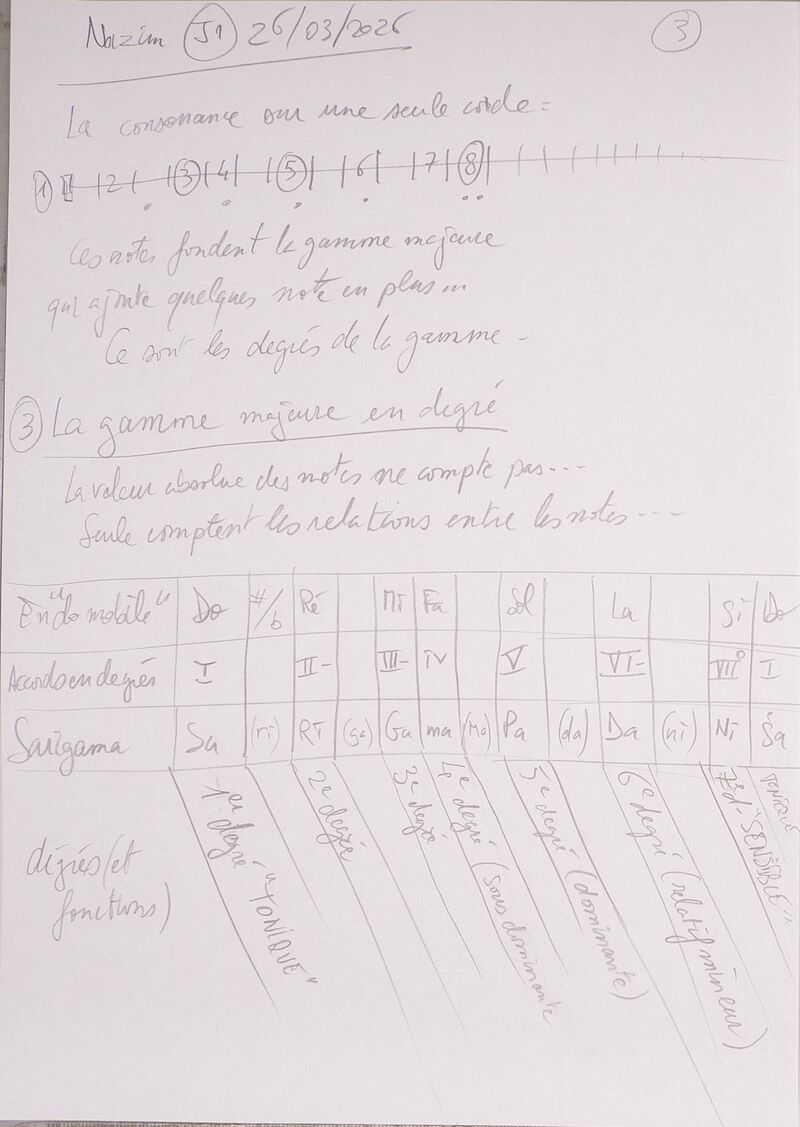 Nazim J1 26/03/2026 3
La consonance sur une seule corde =
1 2 3 4 5 6 7 8
Ces notes fondent la gamme majeure
qui ajoute quelques note en plus...
Ce sont les degrés de la gamme -
3 La gamme majeure en degré
La valeur absolue des notes ne compte pas...
Seule comptent les relations entre les notes...
En "do mobile" Do #/b Ré Mi Fa Sol La Si Do
Accords en degrés I II- III- IV V VI- VII° I
Sarigama Sa (ri) Ri (ga) Ga ma (Ma) Pa (da) Da (ni) Ni Sa
degrés (et
fonctions)
1er degré "TONIQUE"
2e degré
3e degré
4e degré (sous dominante
5e degré (dominante)
6e degré (relatif mineur)
7e d. "SENSIBLE"
TONIQUE